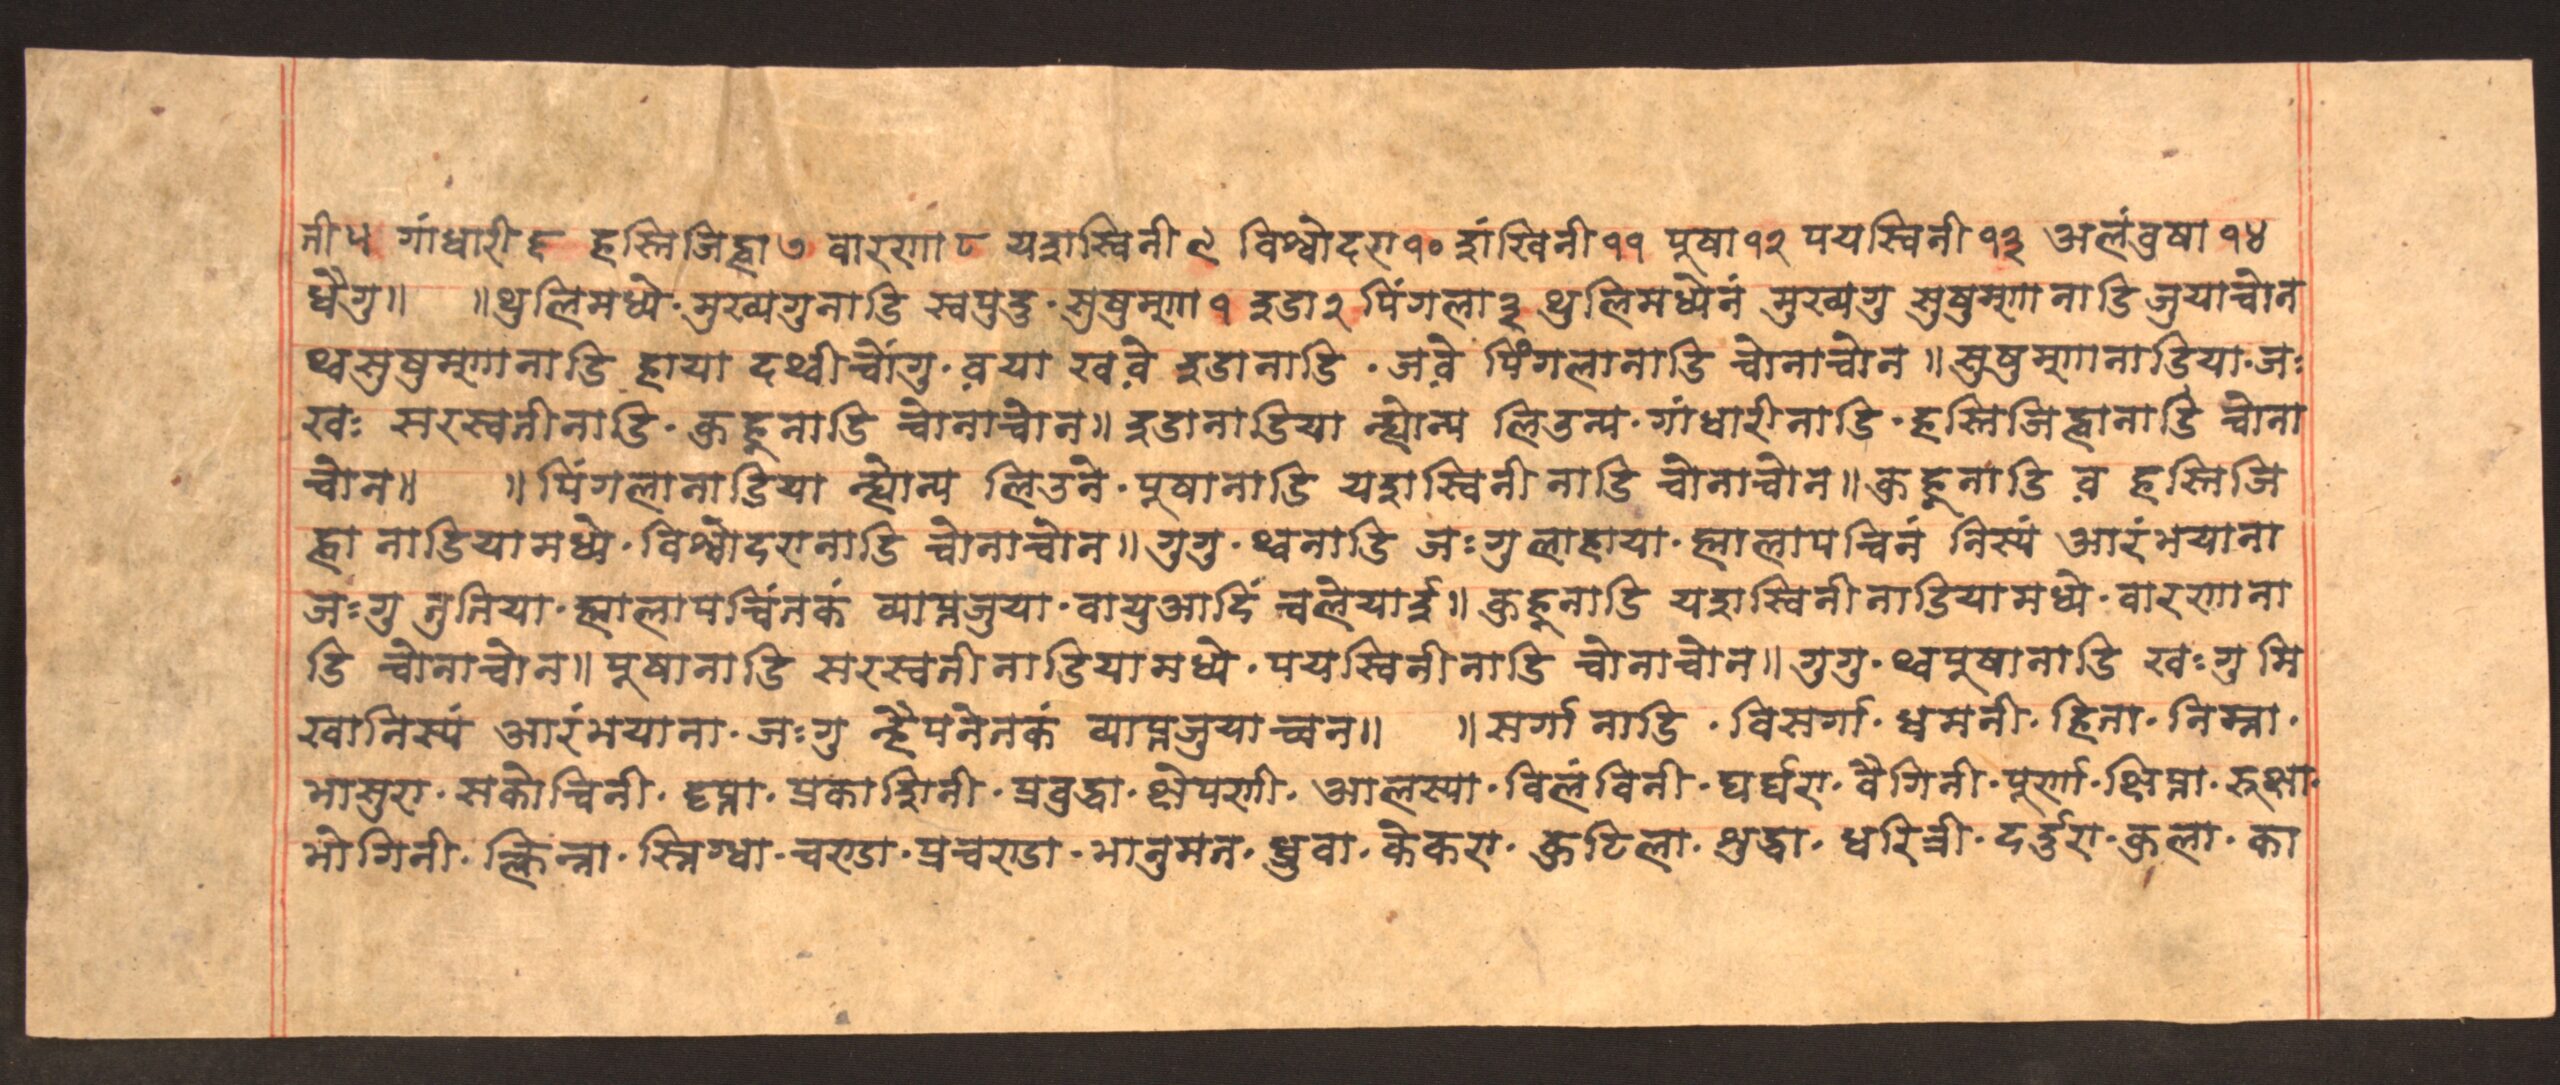 नी५ गांधारी६ हस्तिजिह्वा७ वारणा८ यशस्विनी९ विश्वोदरा१० शंखिनी११ पूषा१२ पयस्विनी१३ अलंवुषा१४
धैगु॥ ॥थुलिमध्ये·मुख्यगुनाडि स्वपुडु·सुषुम्णा१ इडा२ पिंगला३ थुलिमध्येनं मुख्यगु सुषुम्णानाडि जुयाचोन
थ्वसुषुम्णानाडि ह्माया दथ्वीचोंगु·व़या खव़े इडानाडि·जव़े पिंगलानाडि चोनाचोन॥सुषुम्णानाडिया·जः
खः सरस्वतीनाडि·कुहूनाडि चोनाचोन॥इडानाडिया न्ह्योन्य लिउन्य·गांधारीनाडि·हस्तिजिह्वानाडि चोना
चोन॥ ॥पिंगलानाडिया न्ह्योन्य लिउने·पूषानाडि यशस्विनीनाडि चोनाचोन॥कुहूनाडि व़ हस्तिजि
ह्वा नाडियामध्ये·विश्वोदरानाडि चोनाचोन॥गुगु·थ्वनाडि जःगु ल्हाह्माया·ह्मालापचिनं निस्यं आरंभयाना
जःगु तुतिया·ह्मालापचिंतकं व्याप्तजुया·वायुआदिं चलेयाई॥कुहूनाडि यशस्विनीनाडियामध्ये·वारणाना
डि चोनाचोन॥पूषानाडि सरस्वतीनाडियामध्ये·पयस्विनीनाडि चोनाचोन॥गुगु·थ्वपूषानाडि खःगु मि
खानिस्यं आरंभयाना·जःगु न्हैपनेतकं व्याप्तजुया च्वन॥ ॥सर्गा नाडि·विसर्गा·धमनी·हिता·निम्ना·
भासुरा·सकोचिनी·दृप्ता·प्रकाशिनी·प्रवुद्धा·क्षेपणी·आलस्या·विलंविनी·घर्घरा·वैगिनी·पूर्णा·क्षिप्ता·रुक्षा·
भोगिनी·क्लिन्ना·स्निग्धा·चण्डा·प्रचण्डा·भानुमत·ध्रुवा·केकरा·कुटिला·शुद्धा·धरित्री·दर्दुरा·कुला·का